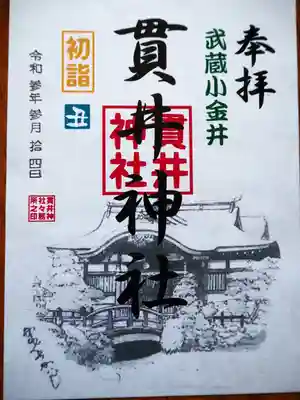 奉拝
武蔵小金井
貫井神社
貫井
神社
初詣
丑
令和参年参月拾四日
貫井神
社々務
所之印